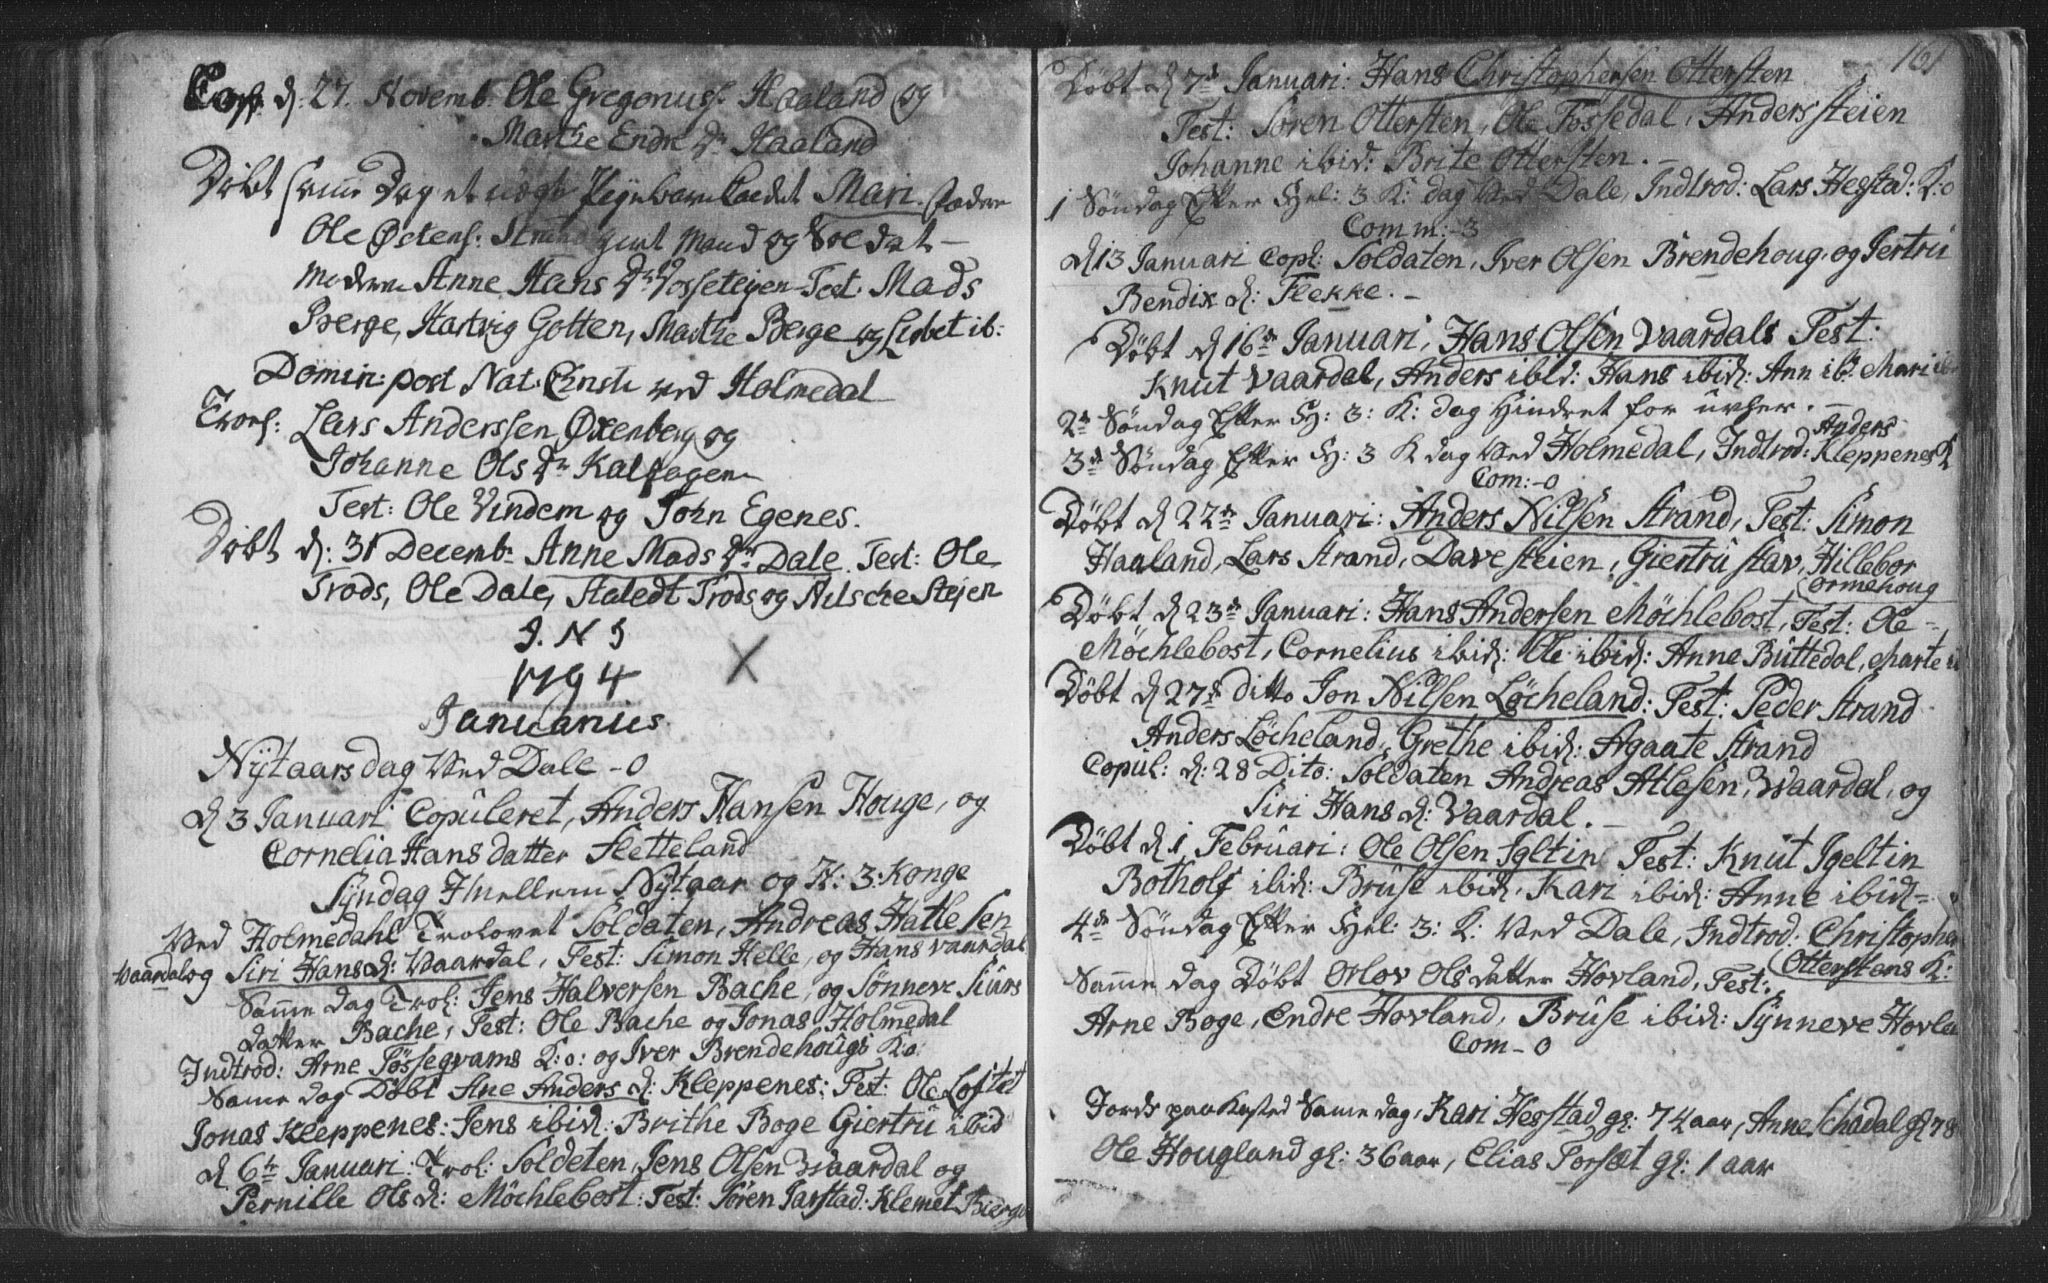 Cop. d: 27. Novemb. Ole Gregoriuss. Haaland og
Marthe Endr Dr Haaland
Döbt samme Dag et uægte Pigebarn kaldet Mari. Fader
Ole Østens: Strand givt Mand og Soldat
Moderen Anne Hans Dr Fossetejen Test. Mads
Berge, Hartvig Gotten, Marthe Berge og Lisbet ib:
Domin: post Nat. Christi ved Holmedal
Troel: Lars Anderssen Øxenberg og
Johanne Ols Dr Kalfagen
Test: Ole Vindem og John Egenes.
Döbt d: 31 Decemb. Anne Mads Dr Dale. Test: Ole
Trods, Ole Dale, Staledt Trods og Nilsche Stejen
J. N J
1794 X
Januarius
Nÿtaarsdag Ved Dale - 0
d 3 Januari Copuleret, Anders Hansen Houge, og
Cornelia Hans datter Sletteland
Syndag Imellem Nÿtaar og H: 3: Konge
Ved Holmedahl Trolovet Soldaten, Andreas Hatlesen
Vaardal og Siri Hans d: Vaardal, Test: Simon Helle, og Hans Vaardal
Samme dag Trol: Jens Halversen Bache, og Sönneve Siurs
datter Bache, Test: Ole Bache og Jonas Holmedal
Indtrod: Arne Fössegvams K:o: og Iver Brendehougs K:o
Same dag Döbt Ane Anders d: Kleppenes: Test: Ole Loftet
Jonas Kleppenes: Jens ibid: Brithe Boge Giertrü ibid
d 6te Januari: Trol: Soldeten, Jens Olsen Waardal og
Pernille Ols d: Möchlebost: Test: Sören Jarstad: Klemet Bierga
161
Döbt d 7de Januari: Hans Christophersen Ottersten
Test: Sören Ottersten, Ole Fössedal, Anders steien
Johanne ibid: Brite Ottersten.
1 Söndag Efter Hel: 3 K: dag Ved Dale, Indtrod: Lars Hegstad: K:o
Comm: - 3
d 13 Januari Copl: Soldaten, Iver Olsen Brendehoug, og Jertru
Bendix d: Flekke.
Döbt d 16de Januari, Hans Olsen Vaardals Test:
Knut Vaardal, Anders ibid: Hans ibid: Ann ib: Mari ib
2de Söndag Efter H: 3: K: dag Hindret for uvher.
Anders
3de Söndag Efter H: 3 K dag Ved Holmedal, Indtrod: Kleppenes K
Com: - 0
Döbt d 22de Januari: Anders Nilsen Strand, Test: Simon
Haaland, Lars Strand, Dave steien, Giertrü stav, Hillebor
Ormehoug
Döbt d 23de Januari: Hans Andersen Möchlebost, Test: Ole
Möchlebost, Cornelius ibid: Ole ibid: Anne Büttedal, Marte
Döbt d 27de Ditto Jon Nilsen Löcheland: Test: Peder Strand
Anders Löcheland, Grethe ibid: Agaate Strand
Copul: d: 28 Dito: Soldaten Andreas Atlesen, Waardal, og
Siri Hans d: Vaardal.
Döbt d 1 Februari: Ole Olsen Igltin Test: Knut Igeltin
Botholf ibid: Brüse ibid, Kari ibid: Anne ibid
4de Söndag Efter Hel: 3: K: Ved Dale, Indtrod: Christopher
Otterstens K:
Samme dag Döbt Orlov Ols datter Hovland, Test:
Arne Boge, Endre Hovland, Brüse ibid: Sÿnneve Hovla
Com - 0
Jords paakasted Same dag, Kari Hegstad gl: 74 aar, Anne Schadal gl 78
Ole Hougland gl: 36 aar, Elias Forsæt gl: 1 aar